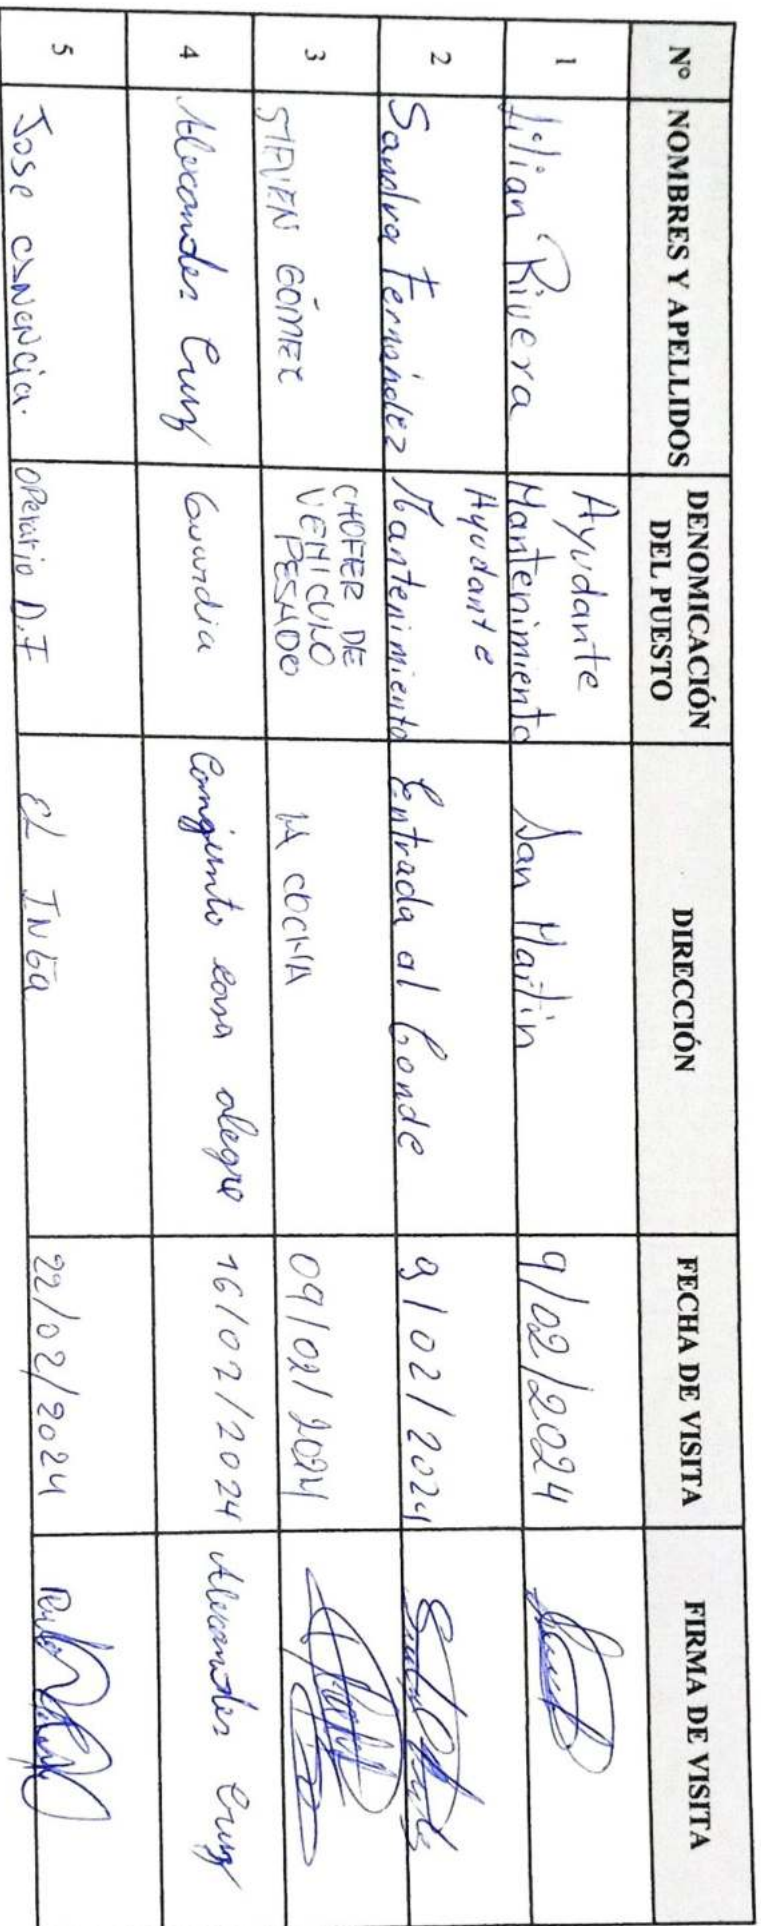 N° NOMBRES Y APELLIDOS DENOMICACIÓN DEL PUESTO DIRECCIÓN FECHA DE VISITA FIRMA DE VISITA
1 Lilian Rivera Ayudante Mantenimiento San Martin 9/02/2024
2 Sandra Fernández Ayudante Mantenimiento Entrada al Conde 9/02/2024
3 STEVEN GÓMEZ CHOFER DE VEHICULO PESADO LA COCHA 09/02/2024
4 Alexander Cruz Guardia Conjunto casa alegre 16/02/2024 Alexander Cruz
5 Jose CANENCia. OPerario D.F EL INGa 22/02/2024